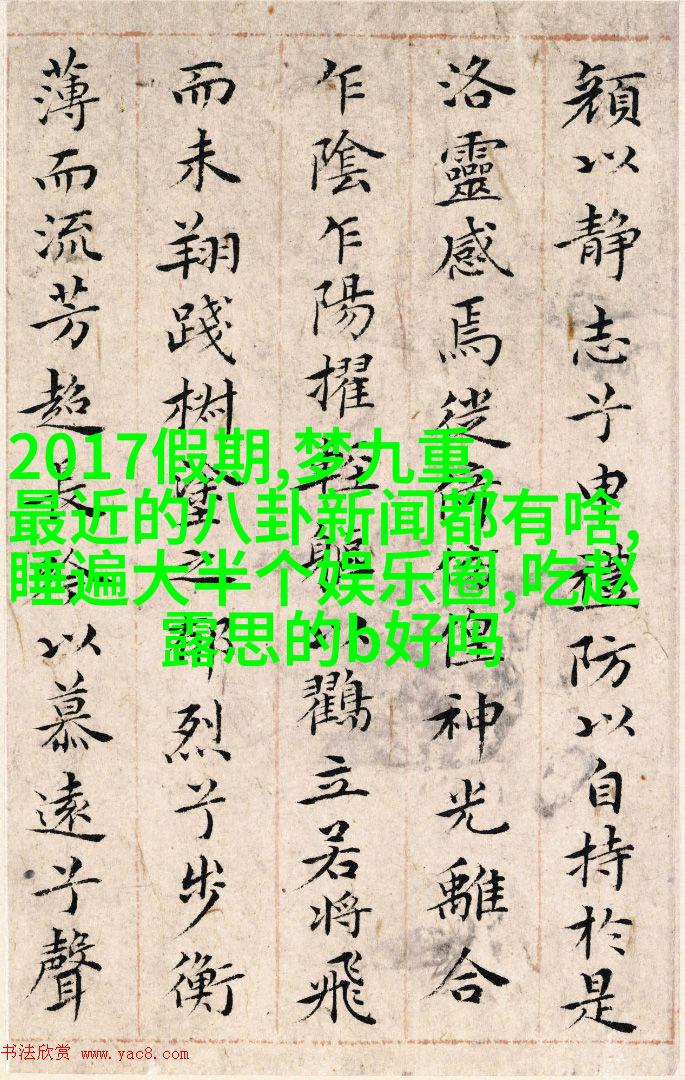 顔以静志兮申禮防以自持於是
洛靈感焉徙倚神光離合
乍陰乍陽擢輕軀以鶴立若將飛
而未翔踐椒塗之郁烈兮步衡
薄而流芳超長吟以慕遠兮聲
2017假期,梦九重,
最近的八卦新闻都有啥,
睡遍大半个娱乐圈,吃赵
露思的b好吗
书法欣赏 www.yac8.com